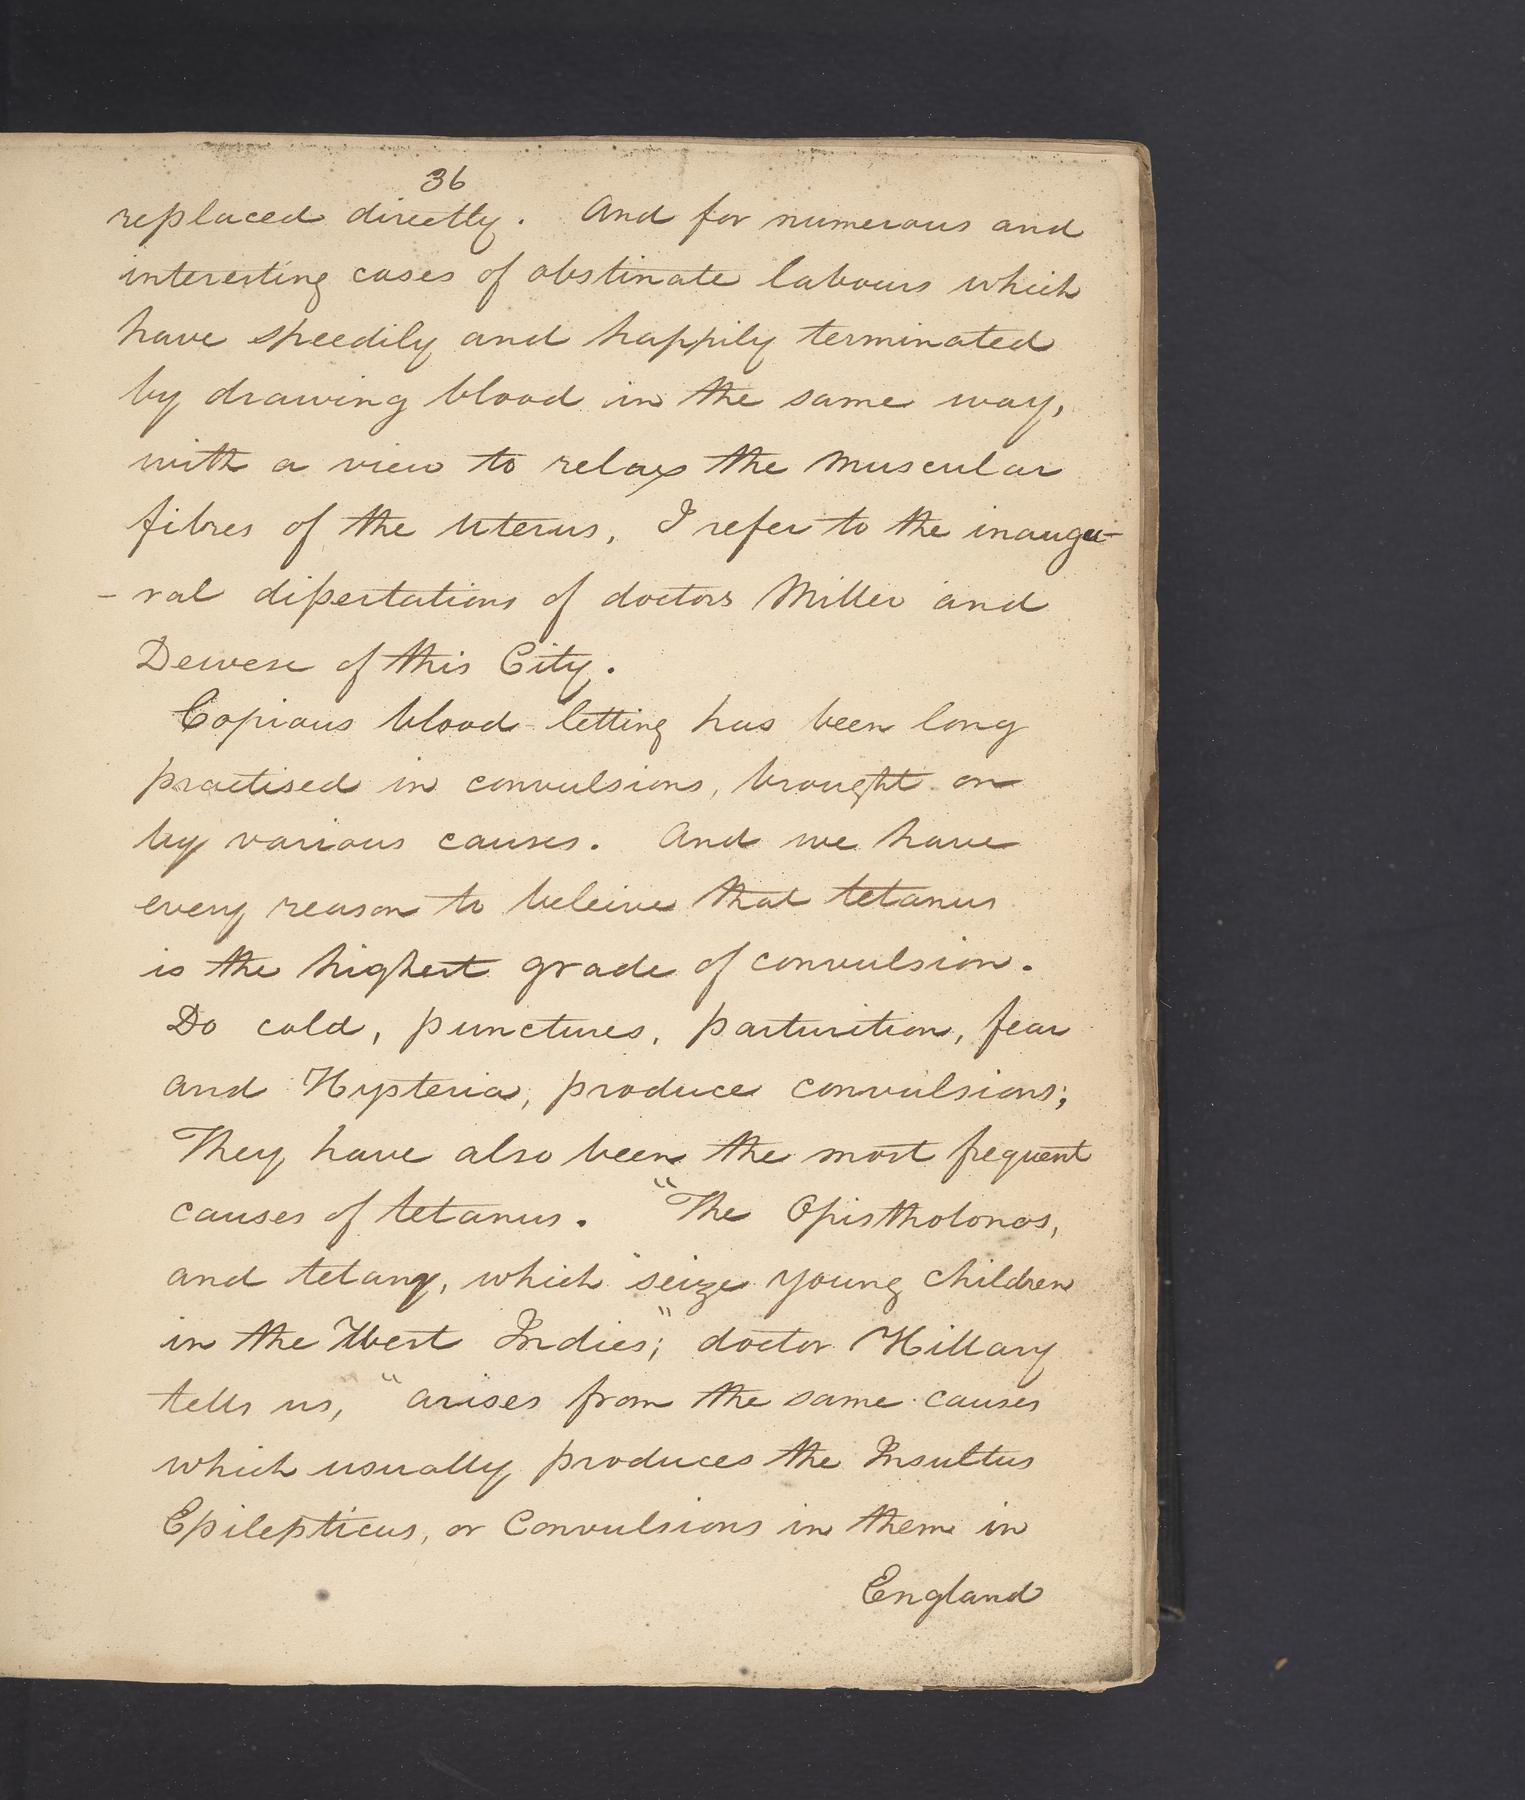 36
replaced directly. And for numerous and
interesting cases of obstinate labours which
have speedily and happily terminated
by drawing blood in the same way,
with a view to relax the muscular
fibres of the uterus, I refer to the inaugu-
-ral dissertations of doctors Miller and
Dewese of this City.
Copious blood-letting has been long
practised in convulsions, brought on
by various causes. And we have
every reason to beleive that tetanus
is the highest grade of convulsion.
Do cold, punctures, parturition, fear
and Hysteria, produce convulsions;
They have also been the most frequent
causes of tetanus. "The Opistholonos,
and tetany, which seize young children
in the West Indies;" doctor Hillary
tells us, "arises from the same causes
which usually produces the Insultus
Epilepticus, or Convulsions in them in
England